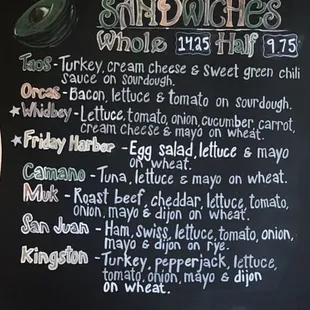 SANDWICHES
Whole 14.25 Half 9.75
Taos - Turkey, cream cheese & sweet green chili
sauce on sourdough.
Orcas - Bacon, lettuce & tomato on sourdough.
★ Whidbey - Lettuce, tomato, onion, cucumber, carrot,
cream cheese & mayo on wheat.
★ Friday Harbor - Egg salad, lettuce & mayo
on wheat.
Camano - Tuna, lettuce & mayo on wheat.
Muk - Roast beef, cheddar, lettuce, tomato,
onion, mayo & dijon on wheat.
San Juan - Ham, swiss, lettuce, tomato, onion,
mayo & dijon on rye.
Kingston - Turkey, pepperjack, lettuce,
tomato, onion, mayo & dijon
on wheat.